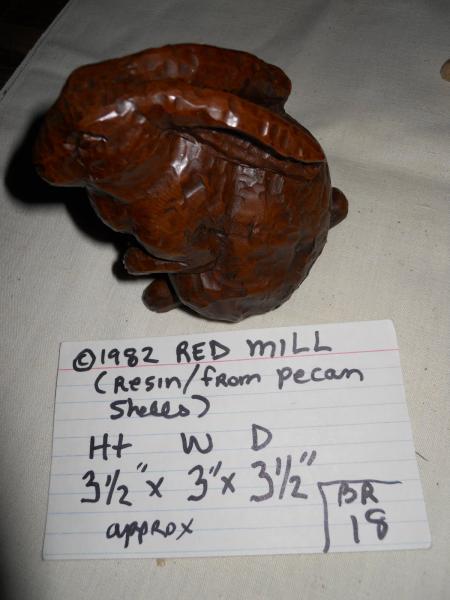 ©1982 RED MILL
(Resin/from pecan
shells)
Ht W D
3½" x 3" x 3½"
approx
BR
18